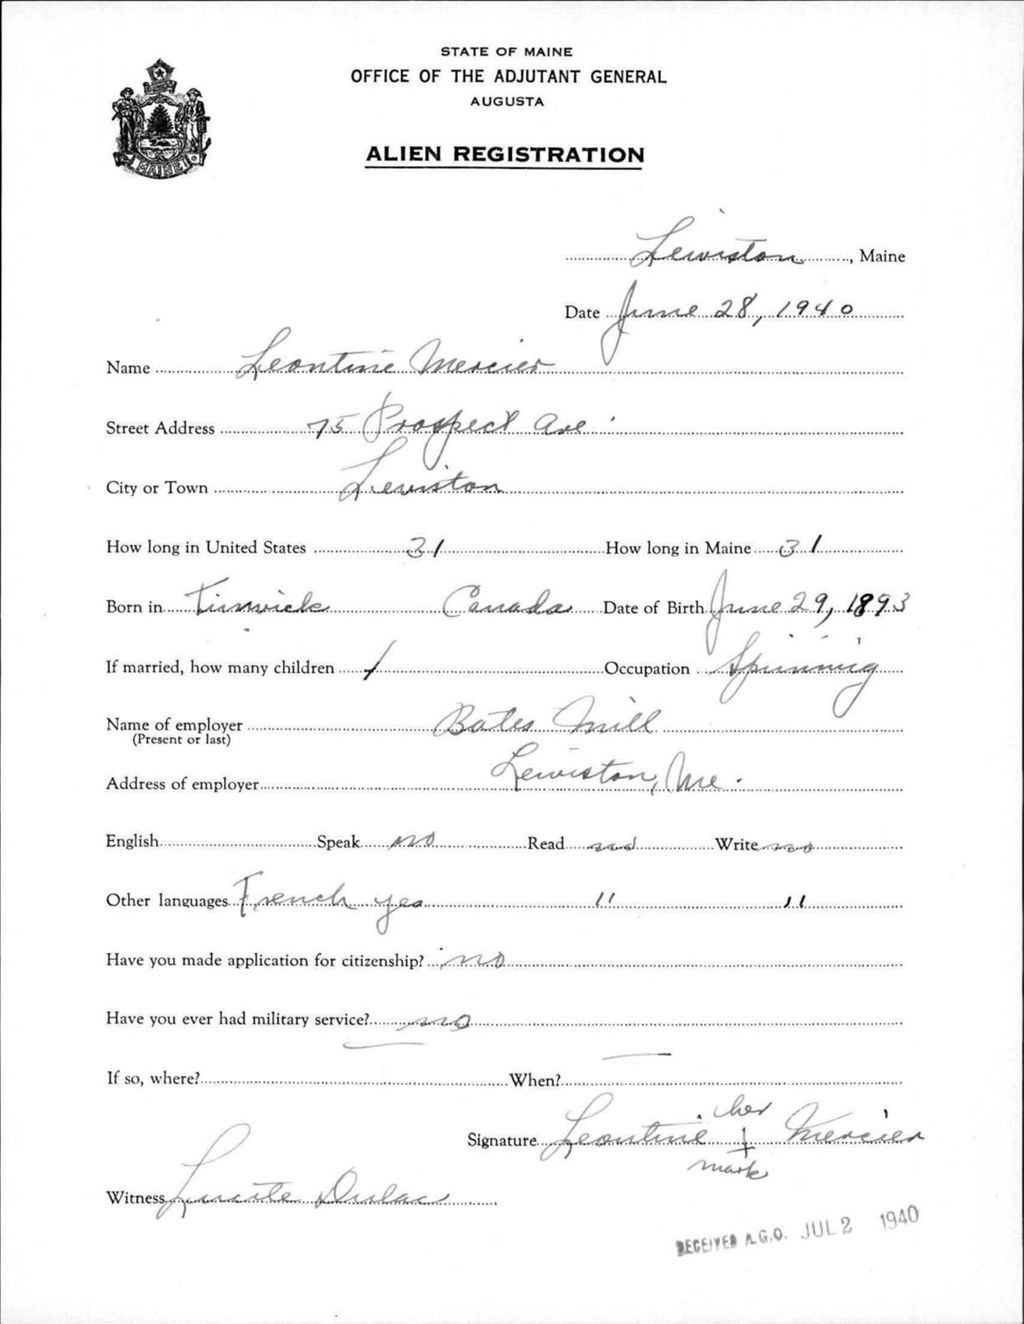 STATE OF MAINE
OFFICE OF THE ADJUTANT GENERAL
AUGUSTA
ALIEN REGISTRATION
MAINE
Lewiston, Maine
Date June 28, 1940
Name Leontine Mercier
Street Address 75 Prospect Ave
City or Town Lewiston
How long in United States 31 How long in Maine 31
Born in Tinwick Canada Date of Birth June 29, 1893
If married, how many children / Occupation Spinning
Name of employer Bates Mill
(Present or last)
Address of employer Lewiston, Me.
English Speak no Read no Write no
Other languages French yes " "
Have you made application for citizenship? no
Have you ever had military service? no
If so, where? — When? —
her
Signature Leontine + Mercier
mark
Witness Lucile Dulac
RECEIVED A.G.O. JUL 2 1940